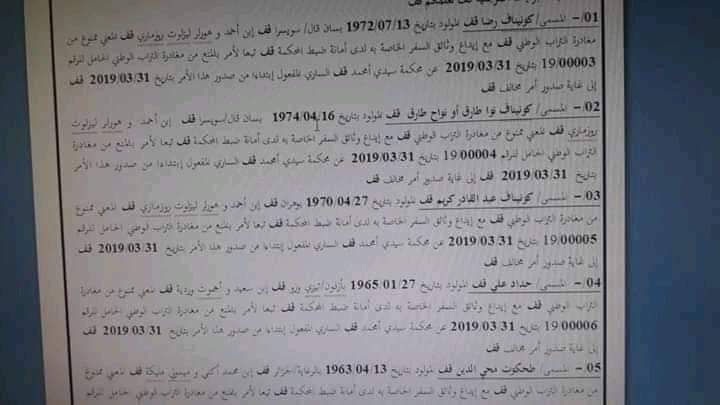 01/- المسمى/ كونيناف رضا قف المولود بتاريخ 1972/07/13 بسان قال/ سويسرا قف إبن أحمد و هورلر ليزلوت روزماري قف المعني ممنوع من
مغادرة التراب الوطني قف مع إيداع وثائق السفر الخاصة به لدى أمانة الضبط المحكمة قف تبعا لأمر بالمنع من مغادرة التراب الوطني الحامل للرقم
19/00003 بتاريخ 2019/03/31 عن محكمة سيدي أمحمد قف الساري المفعول إبتداءا من صدور هذا الأمر بتاريخ 2019/03/31 قف
إلى غاية صدور أمر مخالف قف
02/- المسمى/ كونيناف نوا طارق أو نواح طارق قف المولود بتاريخ 1974/04/16 بسان قال/سويسرا قف إبن أحمد و هورلر ليزلوت
روزماري قف المعني ممنوع من مغادرة التراب الوطني قف مع إيداع وثائق السفر الخاصة به لدى أمانة ضبط المحكمة قف تبعا لأمر بالمنع من مغادرة
التراب الوطني الحامل للرقم 19/00004 بتاريخ 2019/03/31 عن محكمة سيدي أمحمد قف الساري المفعول إبتداءا من صدور هذا الأمر
بتاريخ 2019/03/31 قف إلى غاية صدور أمر مخالف قف
03 -/ المسمى/ كونيناف عبد القادر كريم قف المولود بتاريخ 1970/04/27 بوهران قف إبن أحمد و هورلر ليزلوت روزماري قف المعني ممنوع
من مغادرة التراب الوطني قف مع إيداع وثائق السفر الخاصة به لدى أمانة ضبط المحكمة قف تبعا لأمر بالمنع من مغادرة التراب الوطني الحامل للرقم
19/00005 بتاريخ 2019/03/31 عن محكمة سيدي أمحمد قف الساري المفعول إبتداءا من صدور هذا الأمر بتاريخ 2019/03/31 قف
إلى غاية صدور أمر مخالف قف
04/- المسمى/ حداد علي قف المولود بتاريخ 1965/01/27 بأزفون/تيزي وزو قف إبن سعيد و وردية قف معني ممنوع من مغادرة
التراب الوطني قف مع إيداع وثائق السفر الخاصة به لدى أمانة ضبط المحكمة قف تبعا لأمر بالمنع من مغادرة التراب الوطني الحامل للرقم
19/00006 بتاريخ 2019/03/31 عن محكمة سيدي أمحمد قف الساري المفعول إبتداءا من صدور هذا الأمر بتاريخ 2019/03/31 قف
إلى غاية صدور أمر مخالف قف
05 -/ المسمى/ طحكوت محي الدين قف المولود بتاريخ 1963/04/13 بالرغاية/الجزائر قف إبن محمد أكلي و مليكة قف المعني ممنوع
من مغادرة التراب الوطني قف مع إيداع وثائق السفر الخاصة به لدى أمانة ضبط المحكمة قف تبعا لأمر بالمنع من مغادرة التراب الوطني الحامل للرقم